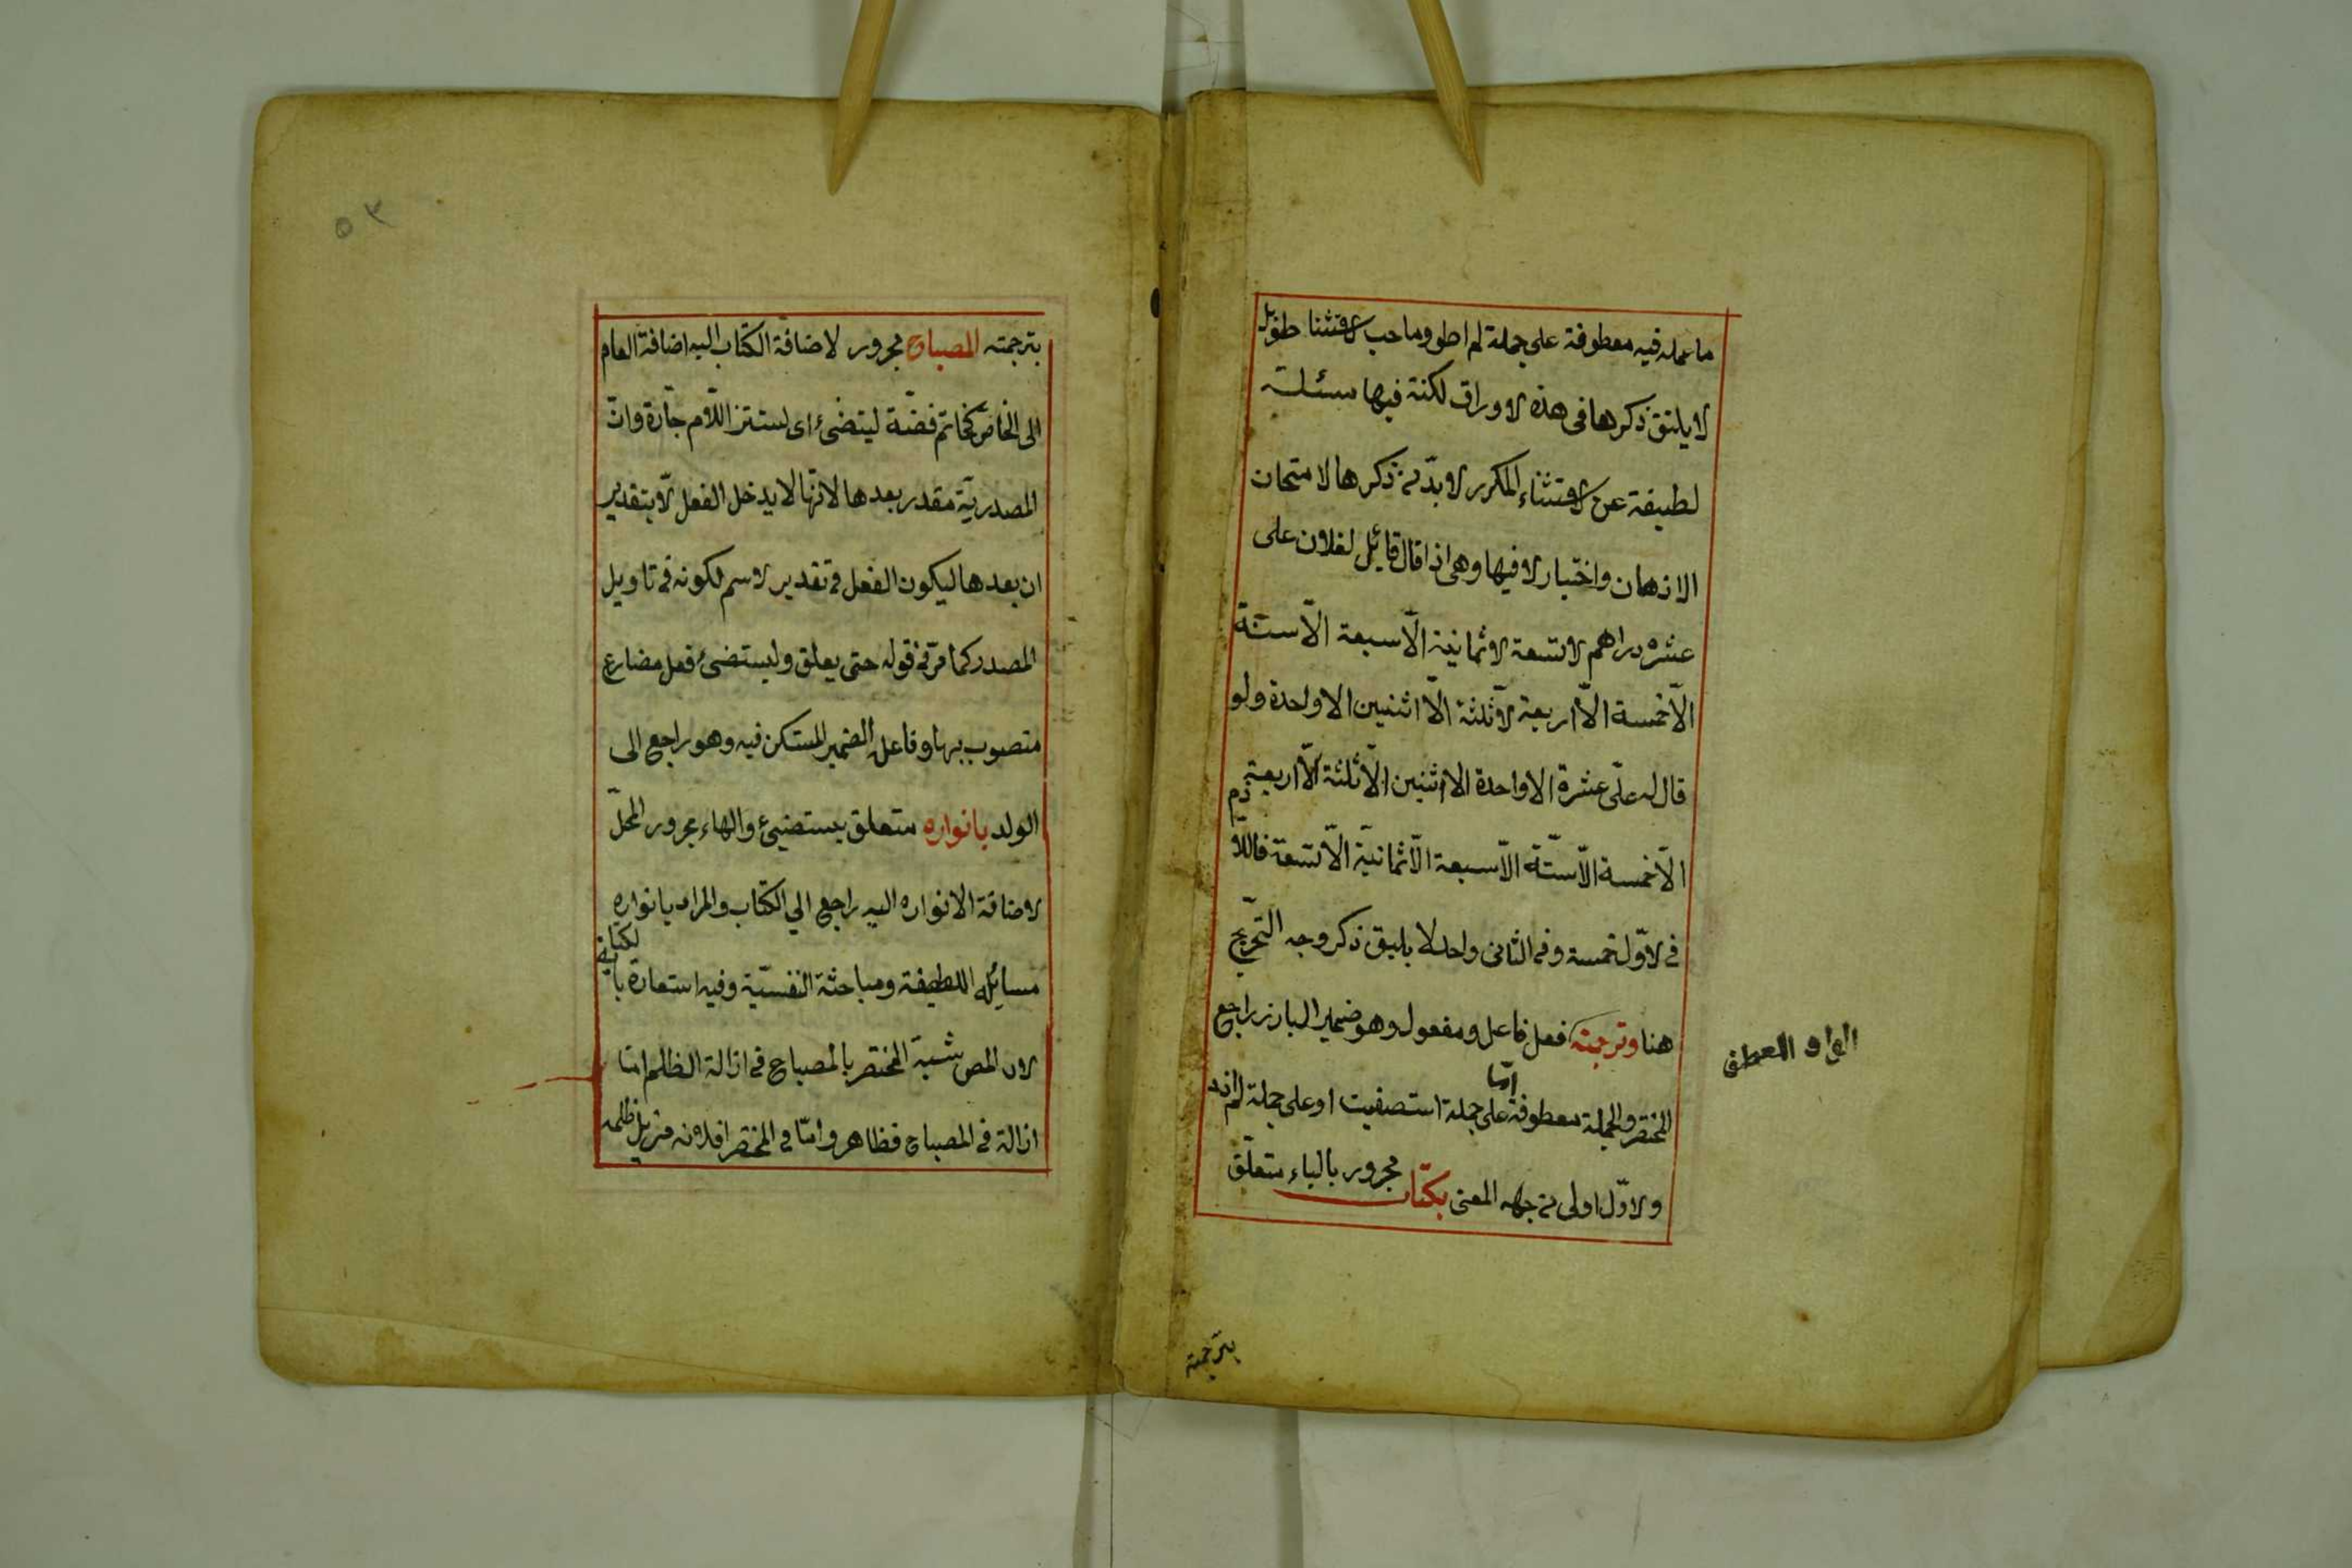 ما عمله فيه معطوفة على جملة لم اطو وماحب الاستثنا طويل
لا يليق ذكرها فى هذه الاوراق لكنة فيها مسئلة
لطيفة عن الاستثناء المكرر لا بدّ من ذكرها لامتحان
الاذهان واختبار لا فيها وهى اذا قال قائل لفلان على
عشرة دراهم الا تسعة الا ثمانية الّا سبعة الّا ستة
الّا خمسة الّا اربعة الّا ثلثة الّا اثنين الا واحدة ولو
قال له علّى عشرة الا واحدة الا اثنين الّا ثلثة الّا اربعة
الّا خمسة الّا ستّة الّا سبعة الّا ثمانية الّا تسعة فاللّا
زم
فى الاوّل خمسة وفى الثانى واحد لا يليق ذكر وجه التخريج
هنا وترجمته فعل فاعل ومفعول وهو ضمير البارز راجع
الواو للعطف
المختصر والجملة معطوفة امّا على جملة استصفيت او على جملة لم ازد
والاوّل اولى من جهه المعنى بكتاب مجرور بالباء متعلّق
بترجمة
٥٣
بترجمته المصباح مجرور لاضافة الكتاب اليه اضافة العام
الى الخاصّ كخاتم فضّة ليتضئ اى ليستنر اللّام جارّة وانّ
المصدريّة مقدر بعدها لانّها لا يدخل الفعل الّا بتقدير
ان بعدها ليكون الفعل فى تقدير الاسم لكونه فى تاويل
المصدر كما مرّ فى قوله حتى يعلق وليستضئ فعل مضارع
منصوب بها وفاعله الضمير المستكن فيه وهو راجع الى
الولد بانواره متعلق بيستضيئ والهاء مجرور المحلّ
لاضافة الانواره اليه راجع الي الكتاب والمراد بانواره
مسائله اللطيفة ومباحثة النفسيّة وفيه استعارة بالكناية
لان المص شبه المختصر بالمصباح فى ازالة الظلم امّا
ازالة فى المصباح فظاهر وامّا فى المختصر افلانه مزيل ظلمة